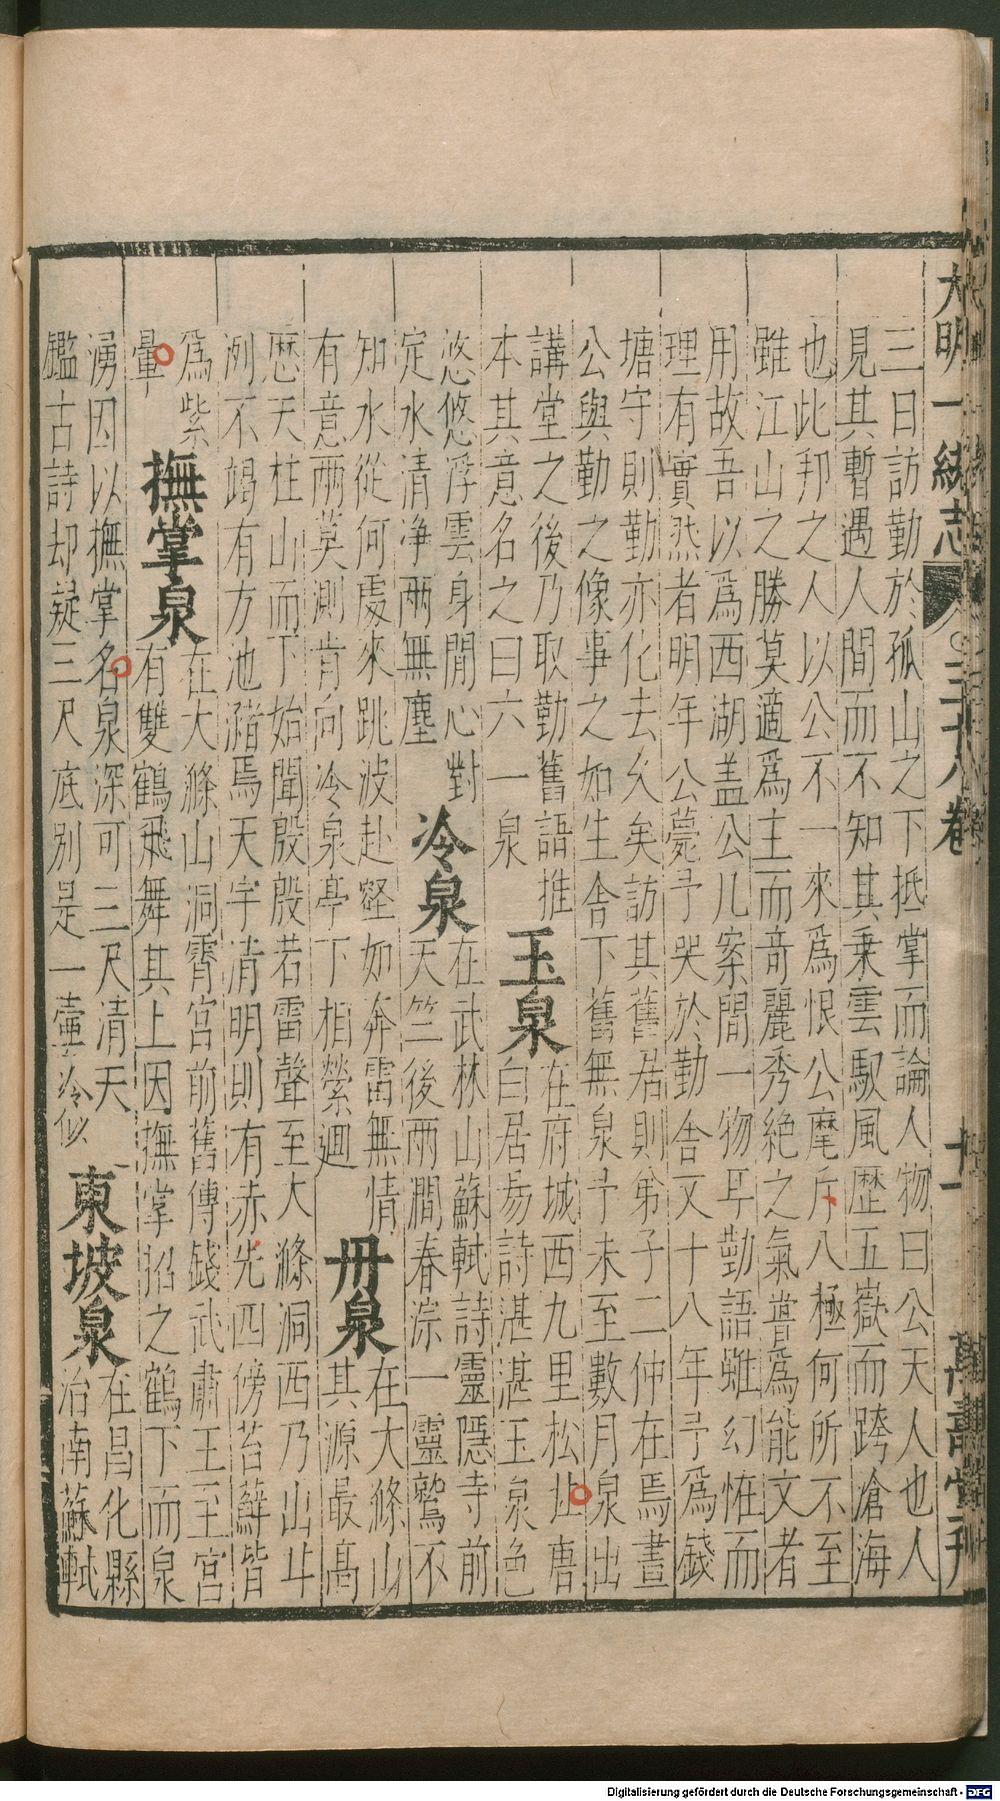 大明一統志 三十八卷 十一 萬壽堂刊
三日訪勤於孤山之下抵掌而論人物曰公天人也人
見其暫遇人間而不知其乘雲馭風歷五嶽而跨滄海
也此邦之人以公不一來爲恨公麾斥八極何所不至
雖江山之勝莫適爲主而奇麗秀絕之氣嘗爲能文者
用故吾以爲西湖盖公几案間一物耳勤語雖幻恠而
理有實然者明年公薨予哭於勤舍又十八年予爲錢
塘守則勤亦化去久矣訪其舊居則弟子二仲在焉畫
公與勤之像事之如生舍下舊無泉予未至數月泉出
講堂之後乃取勤舊語推
本其意名之曰六一泉
玉泉
在府城西九里松北唐
白居昜詩湛湛玉泉色
悠悠浮雲身閒心對
定水清净兩無塵
冷泉
在武林山蘇軾詩靈隱寺前
天竺後兩澗春淙一靈鷲不
知水從何處來跳波赴壑如奔雷無情
有意兩莫測肯向冷泉亭下相縈迴
丹泉
在大滌山
其源最高
歷天柱山而下始聞殷殷若雷聲至大滌洞西乃山斗
洌不竭有方池潴焉天宇清明則有赤先四傍苔蘚皆
爲紫
暈
撫掌泉
在大滌山洞霄宮前舊傳錢武肅王至宮
有雙鶴飛舞其上因撫掌招之鶴下而泉
湧因以撫掌名泉深可三尺清天
鑑古詩却疑三尺底别是一壷冷似
東坡泉
在昌化縣
治南蘇軾
Digitalisierung gefördert durch die Deutsche Forschungsgemeinschaft - DFG